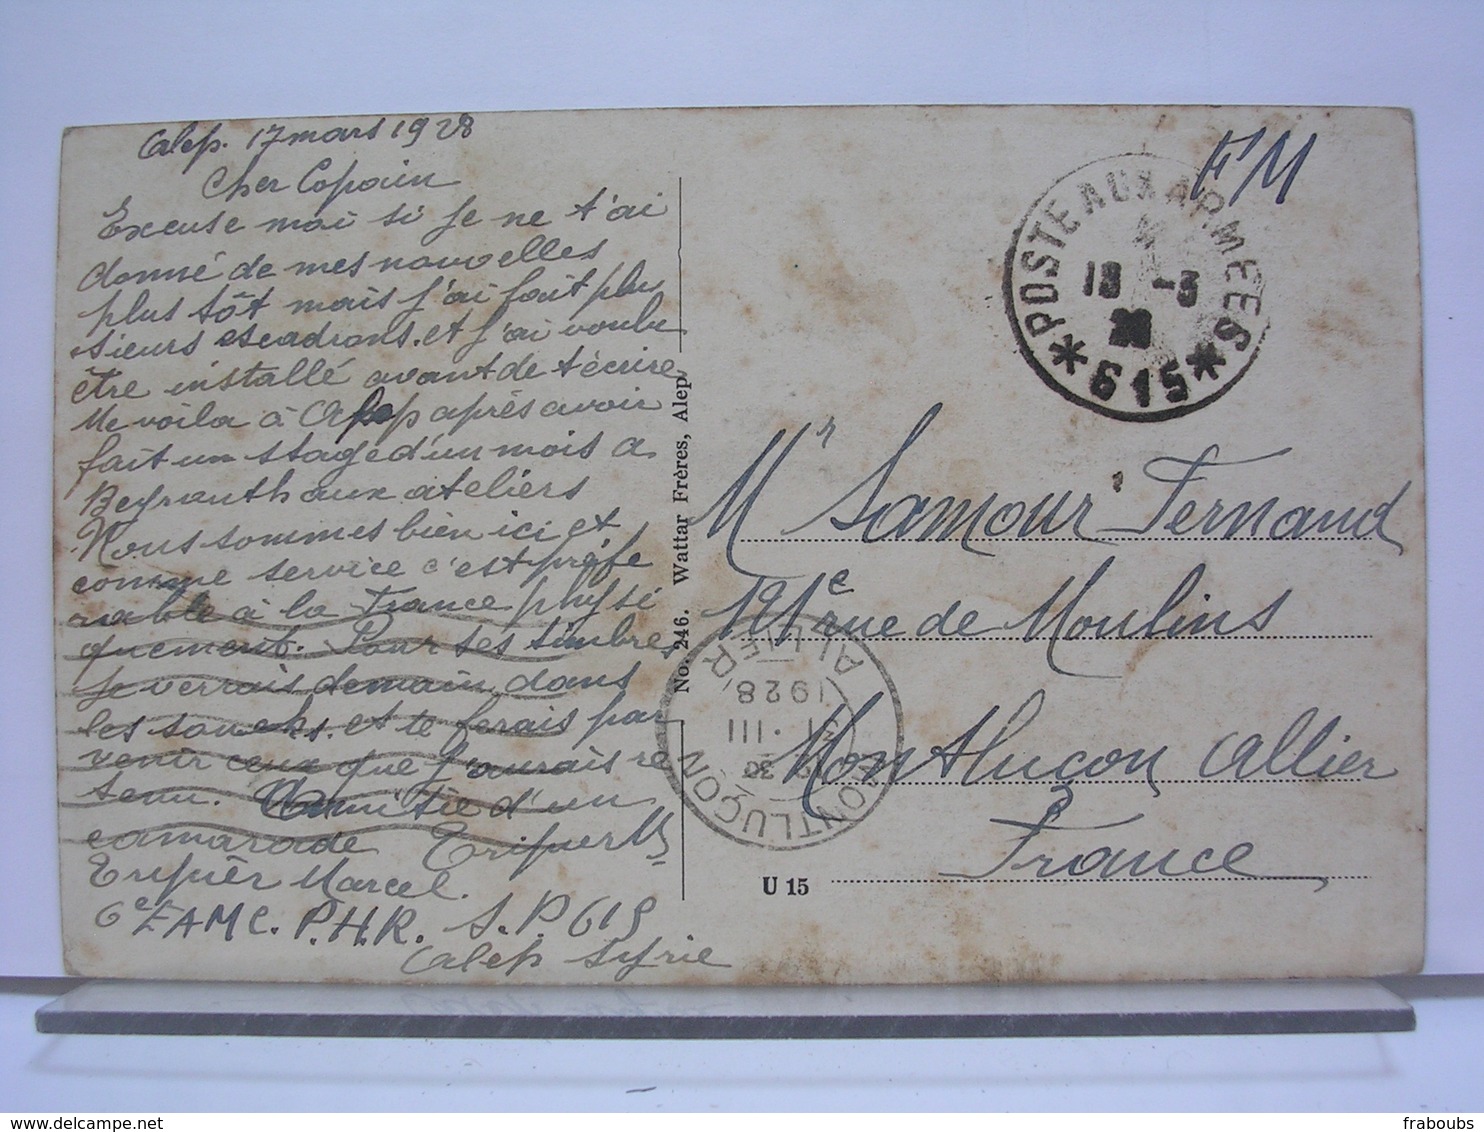 Alep. 17 mars 1928
Cher Copain
Excuse moi si je ne t'ai
donné de mes nouvelles
plus tôt mais j'ai fait plu
sieurs escadrons. et j'ai voulu
être installé avant de t'écrire
Me voila à Alep après avoir
fait un stage d'un mois a
Beyrouth aux ateliers
Nous sommes bien ici et
comme service c'est préfé
rable à la France physi
quement. Pour ses timbres
je verrais demain dans
les souks. et te ferais par
venir ceux que j'aurais re
tenu. Amitie d'un
camarade
Marcel.
6e EAMC. P.H.R. S.P 615
Alep Syrie
No. 246. Wattar Frères, Alep
FM
POSTE AUX ARMEES
18 -3
28
* 615 *
Mr Lamour Fernand
rue de Moulins
Montluçon Allier
France
U 15
MONTLUÇON
31 . III
1928
ALLIER
delcampe.net
fraboubs